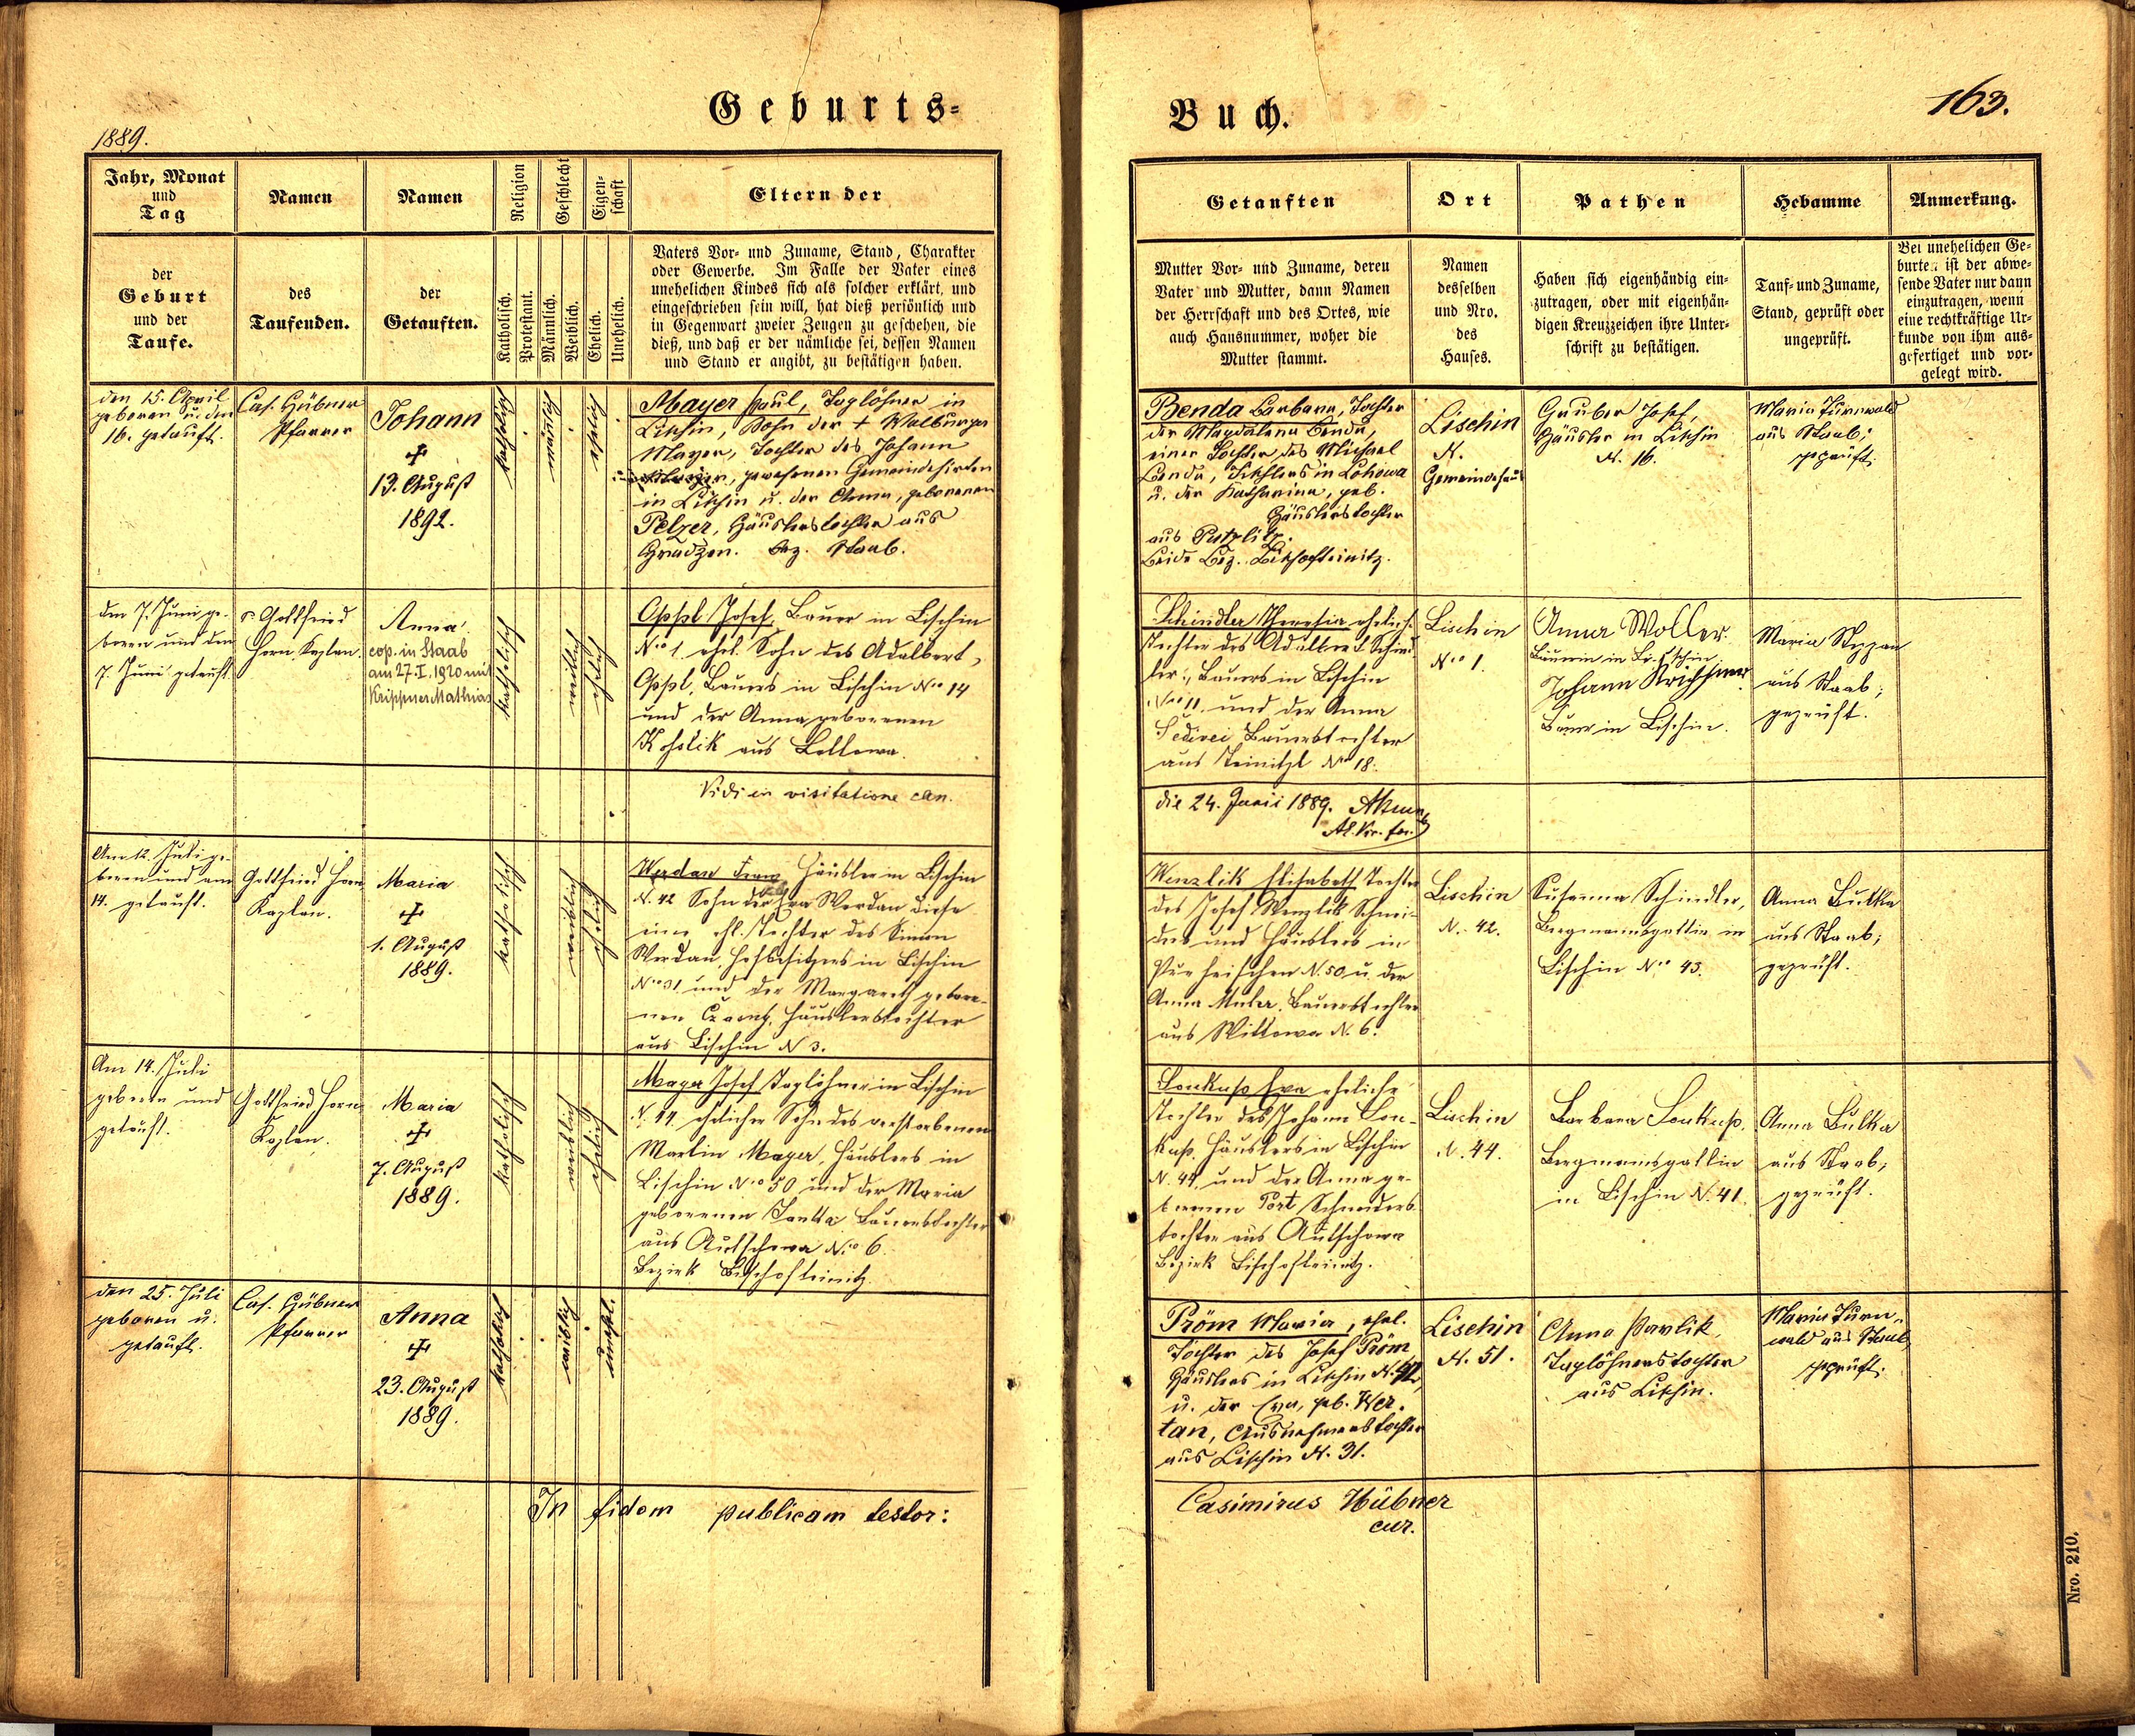 Geburts-
1889.
Jahr, Monat
und
Tag
Namen
Namen
Religion
Geschlecht
Eigen-
schaft
Eltern der
der
Geburt
und der
Taufe.
des
Taufenden.
der
Getauften.
Katholisch.
Protestant.
Männlich.
Weiblich.
Ehelich.
Unehelich.
Vaters Vor- und Zuname, Stand, Charakter
oder Gewerbe. Im Falle der Vater eines
unehelichen Kindes sich als solcher erklärt, und
eingeschrieben sein will, hat dieß persönlich und
in Gegenwart zweier Zeugen zu geschehen, die
dieß, und daß er der nämliche sei, dessen Namen
und Stand er angibt, zu bestätigen haben.
den 15. April
geboren u. den
16. getauft.
Cas. Hübner
Pfarrer
Johann
✠
13. August
1892.
katholisch
männlich
ehelich
Mayer Paul, Taglöhner in
Lischin, Sohn der + Walburga
Mayer, Tochter des Johann
Mayer, gewesenen Gemeindehirten
in Lischin u. der Anna, geborenen
Pelzer, Häuslerstochter aus
Gradzen. Bez. Staab.
den 7. Juni ge-
boren und den
7. Juni getauft
P. Gottfried
Horn Kaplan.
Anna
cop. in Staab
am 27.I.1920 mit
Krippner Mathias
katholisch
weiblich
ehelich
Oppl Josef, Bauer in Lischin
N° 1. ehel. Sohn des Adalbert
Oppl, Bauers in Lischin N° 14
und der Anna geborenen
Kohslik aus Lellowa.
Vidi in visitatione can.
Am 12. Juli ge-
boren und am
14. getauft.
Gottfried Horn
Kaplan.
Maria
✠
1. August
1889.
katholisch
weiblich
ehelich
Werdan Franz Häusler in Lischin
N. 42 Sohn der Eva Werdan diese
eine ehl. Tochter des Simon
Werdan, Hofbesitzers in Lischin
N° 31 und der Margareth gebore-
nen Häuslerstochter
aus Lischin N 3.
Am 14. Juli
geboren und
getauft.
Gottfried Horn
Kaplan.
Maria
✠
7. August
1889.
katholisch
weiblich
ehelich
Mayer Josef Taglöhner in Lischin
N. 44. ehelicher Sohn des verstorbenen
Martin Mayer, Häuslers in
Lischin N° 50 und der Maria
geborenen Bauerstochter
aus Autschowa N° 6.
Bezirk Bischofteinitz.
den 25. Juli
geboren u.
getauft.
Cas. Hübner
Pfarrer
Anna
✠
23. August
1889.
katholisch
weiblich
unehel.
In fidem publicam testor:
Buch.
163.
Getauften
Ort
Pathen
Hebamme
Anmerkung.
Mutter Vor- und Zuname, deren
Vater und Mutter, dann Namen
der Herrschaft und des Ortes, wie
auch Hausnummer, woher die
Mutter stammt.
Namen
desselben
und Nro.
des
Hauses.
Haben sich eigenhändig ein-
zutragen, oder mit eigenhän-
digen Kreuzzeichen ihre Unter-
schrift zu bestätigen.
Tauf- und Zuname,
Stand, geprüft oder
ungeprüft.
Bei unehelichen Ge-
burten ist der abwe-
sende Vater nur dann
einzutragen, wenn
eine rechtkräftige Ur-
kunde von ihm aus-
gefertiget und vor-
gelegt wird.
Benda Barbara, Tochter
der Magdalena Benda,
einer Tochter des Michael
Benda, Tischlers in Lohowa
u. der Katharina, geb.
Häuslerstochter
aus Putzlitz.
Beide Bez. Bischofteinitz.
Lischin
N.
Gemeindehaus
Gruber Josef,
Häusler in Lischin
N. 16.
Maria Turnwald
aus Staab;
geprüft.
Schindler Theresia eheliche
Tochter des Adalbert Schind-
ler, Bauers in Lischin
N° 11. und der Anna
Sediwi Bauerstochter
aus Teinitzl N° 18.
Lischin
N° 1.
Anna Woller
Bäuerin in Lischin
Johann
Bauer in Lischin.
Maria Stegan
aus Staab;
geprüft.
die 24. Junii 1889.
Wenzlik Elisabeth Tochter
des Josef Wenzlik Schnei-
ders und Häuslers in
Pürheischen N. 50 u. der
Anna Maler Bauerstochter
aus Wittowa N. 6.
Lischin
N. 42.
Susanna Schindler,
Bergmannsgattin in
Lischin N° 43.
Anna Bulka
aus Staab;
geprüft.
Soukup Eva eheliche
Tochter des Johann Sou-
kup, Häuslers in Lischin
N. 44. und der Anna ge-
borenen Port Schneiders-
tochter aus Autschowa
Bezirk Bischofteinitz.
Lischin
N. 44.
Barbara Soukup.
Bergmannsgattin
in Lischin N. 41.
Anna Bulka
aus Staab;
geprüft.
Pröm Maria, ehel.
Tochter des Josef Pröm
Häuslers in Lischin N. 42,
u. der Eva, geb. Wer-
tan, Ausnehmerstochter
aus Lischin N. 31.
Lischin
N. 51.
Anna Pavlik,
Taglöhnerstochter
aus Lischin.
Maria Turn-
wald aus Staab
geprüft.
Casimirus Hübner
cur.
Nro. 210.